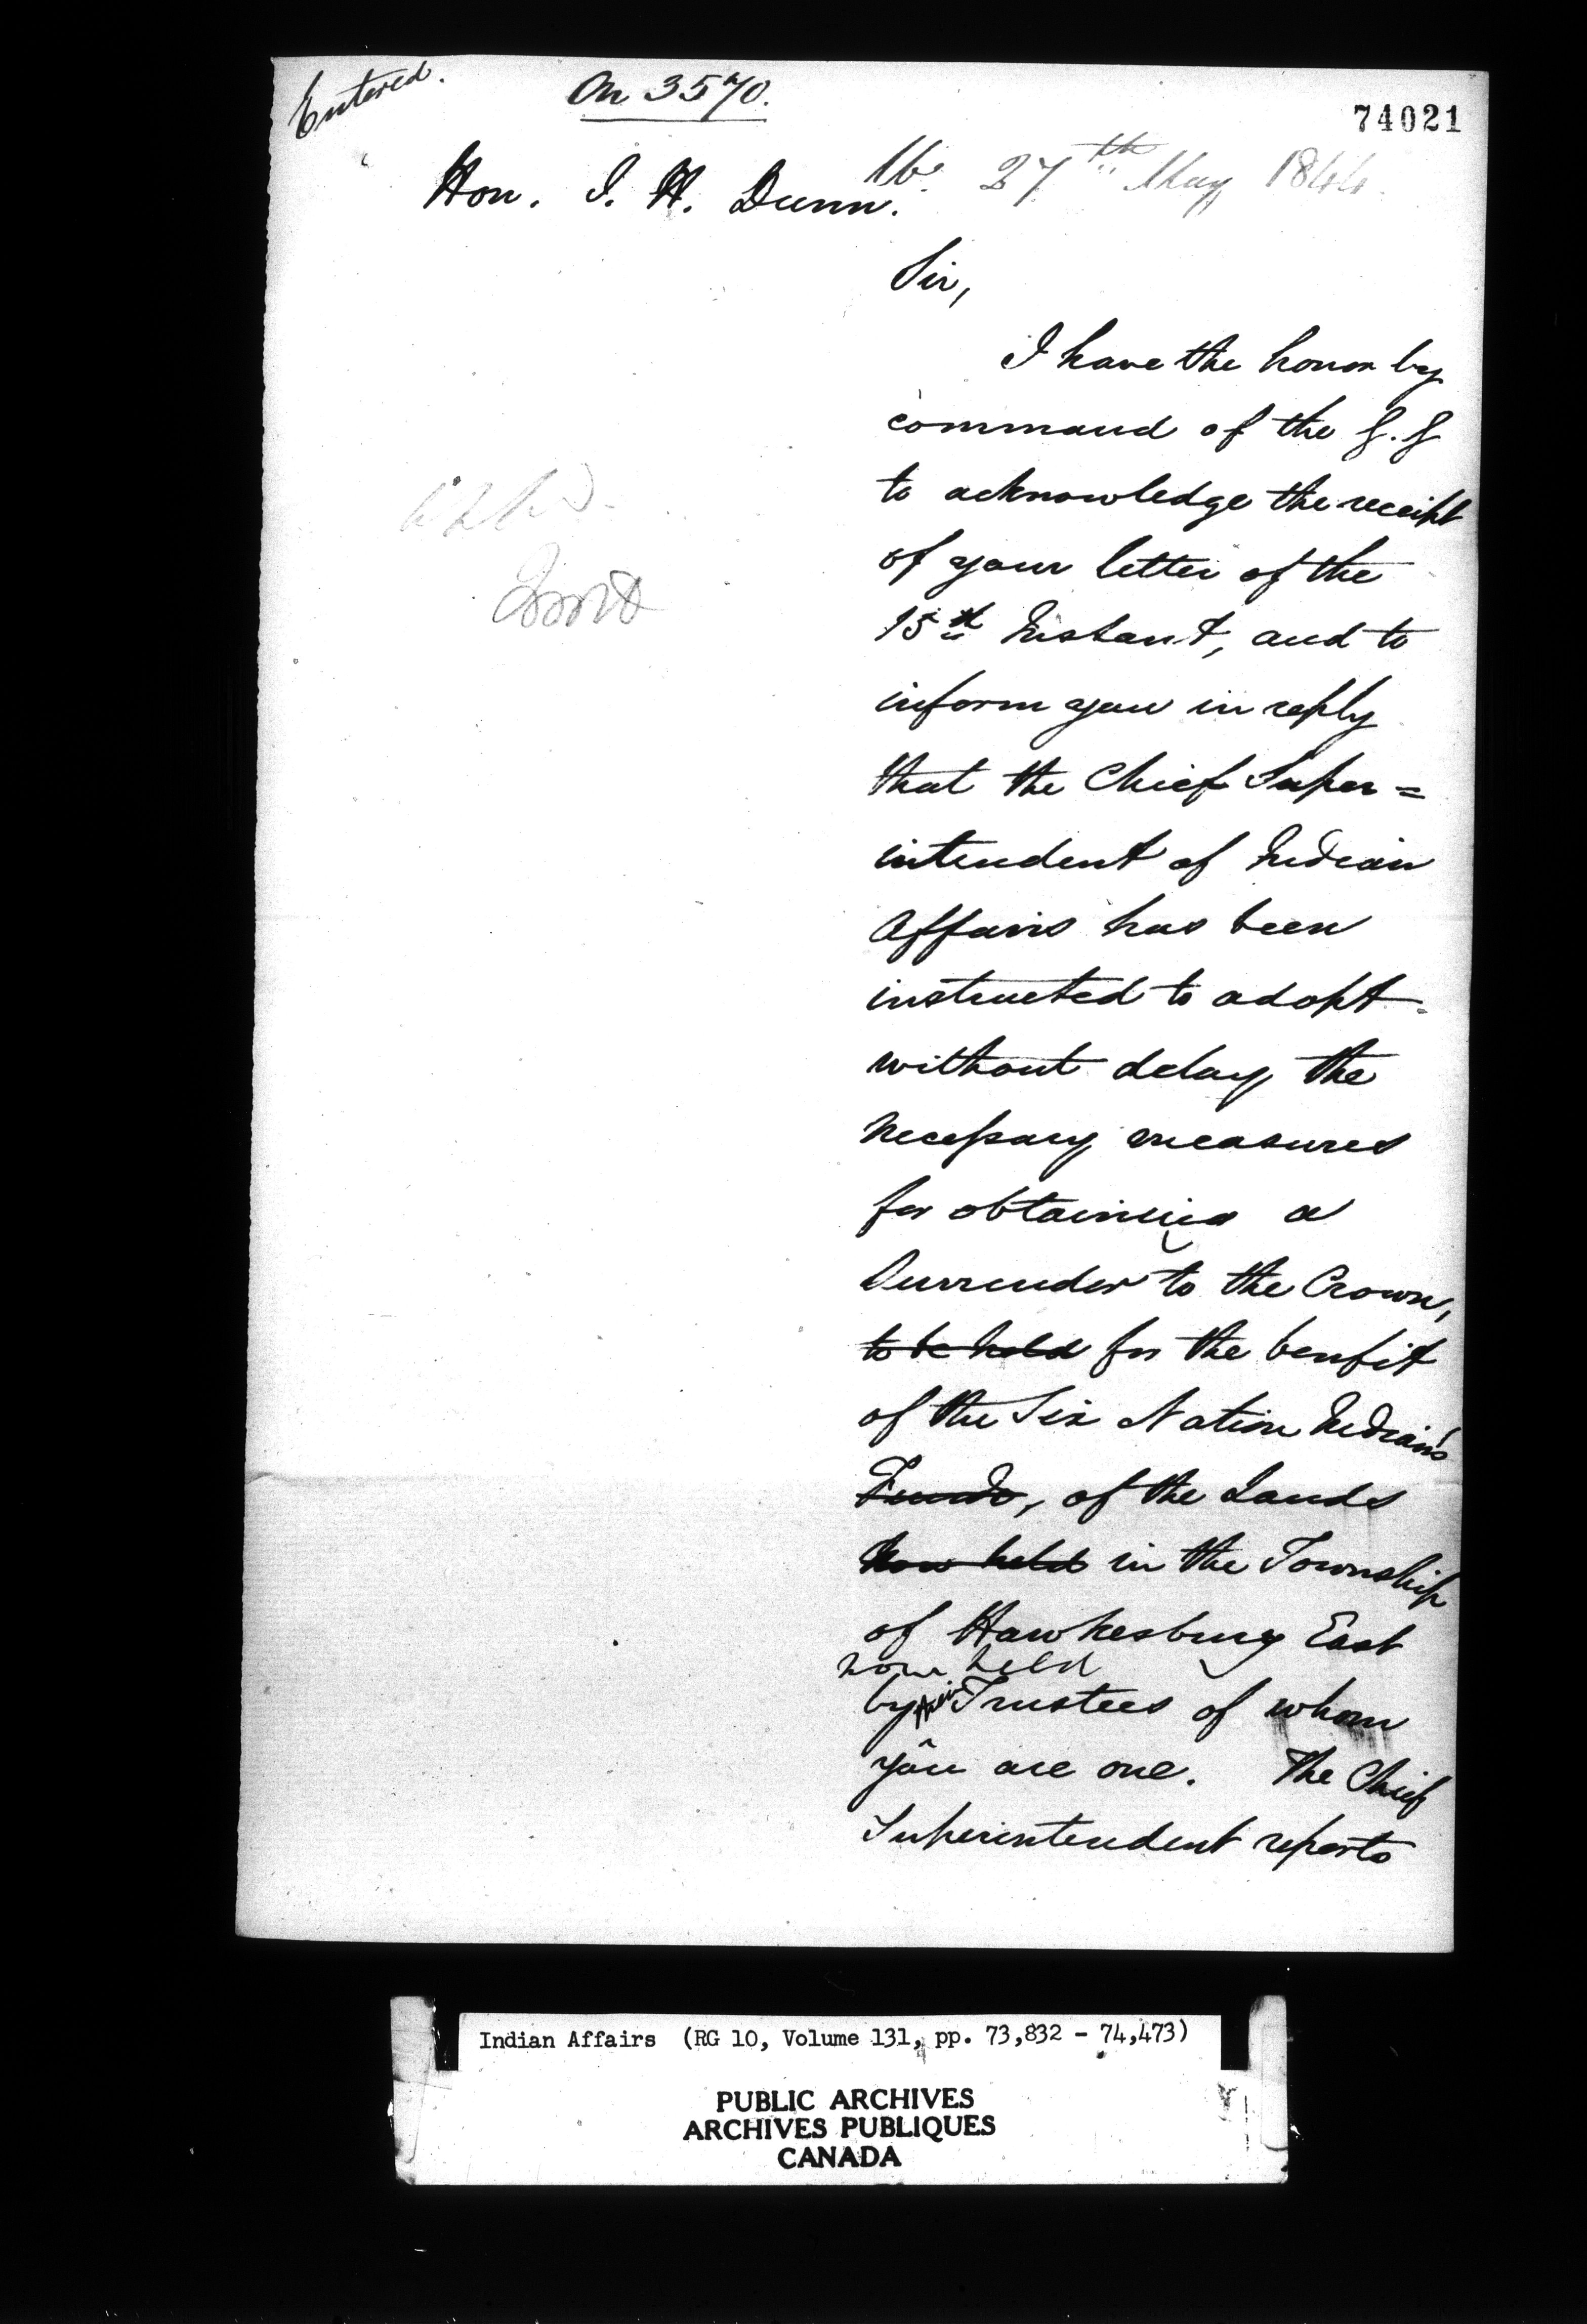 Entered.
On 3570.
74021
27th May 1844.
Hon. J. H. Dunn.
Sir,
I have the honor by
command of the G. G
to acknowledge the receipt
of your letter of the
15th Instant, and to
inform you in reply
that the Chief Super=
intendent of Indian
Affairs has been
instructed to adopt
without delay the
necessary measures
for obtaining a
Surrender to the Crown,
to be held for the benfit
of the Six Nation Indians
Funds, of the Lands
now held in the Township
of Hawkesbury East
now held
by their Trustees of whom
you are one. The Chief
Superintendent reports
Indian Affairs (RG 10, Volume 131, pp. 73,832 - 74,473)
PUBLIC ARCHIVES
ARCHIVES PUBLIQUES
CANADA